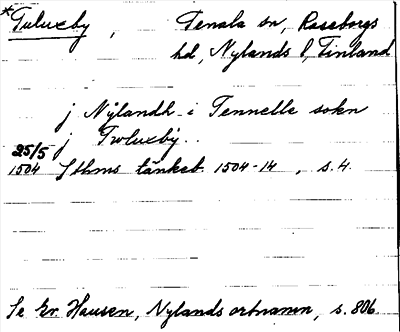 *Tuluxby, Tenala sn, Raseborgs
hd, Nylands l, Finland
j Nÿlandh i Tennelle sokn
25/5 j Twluxbÿ..
1504 Sthms tänkeb. 1504-14, s. 4.
Se Gr. Hausen, Nylands ortnamn, s. 806.